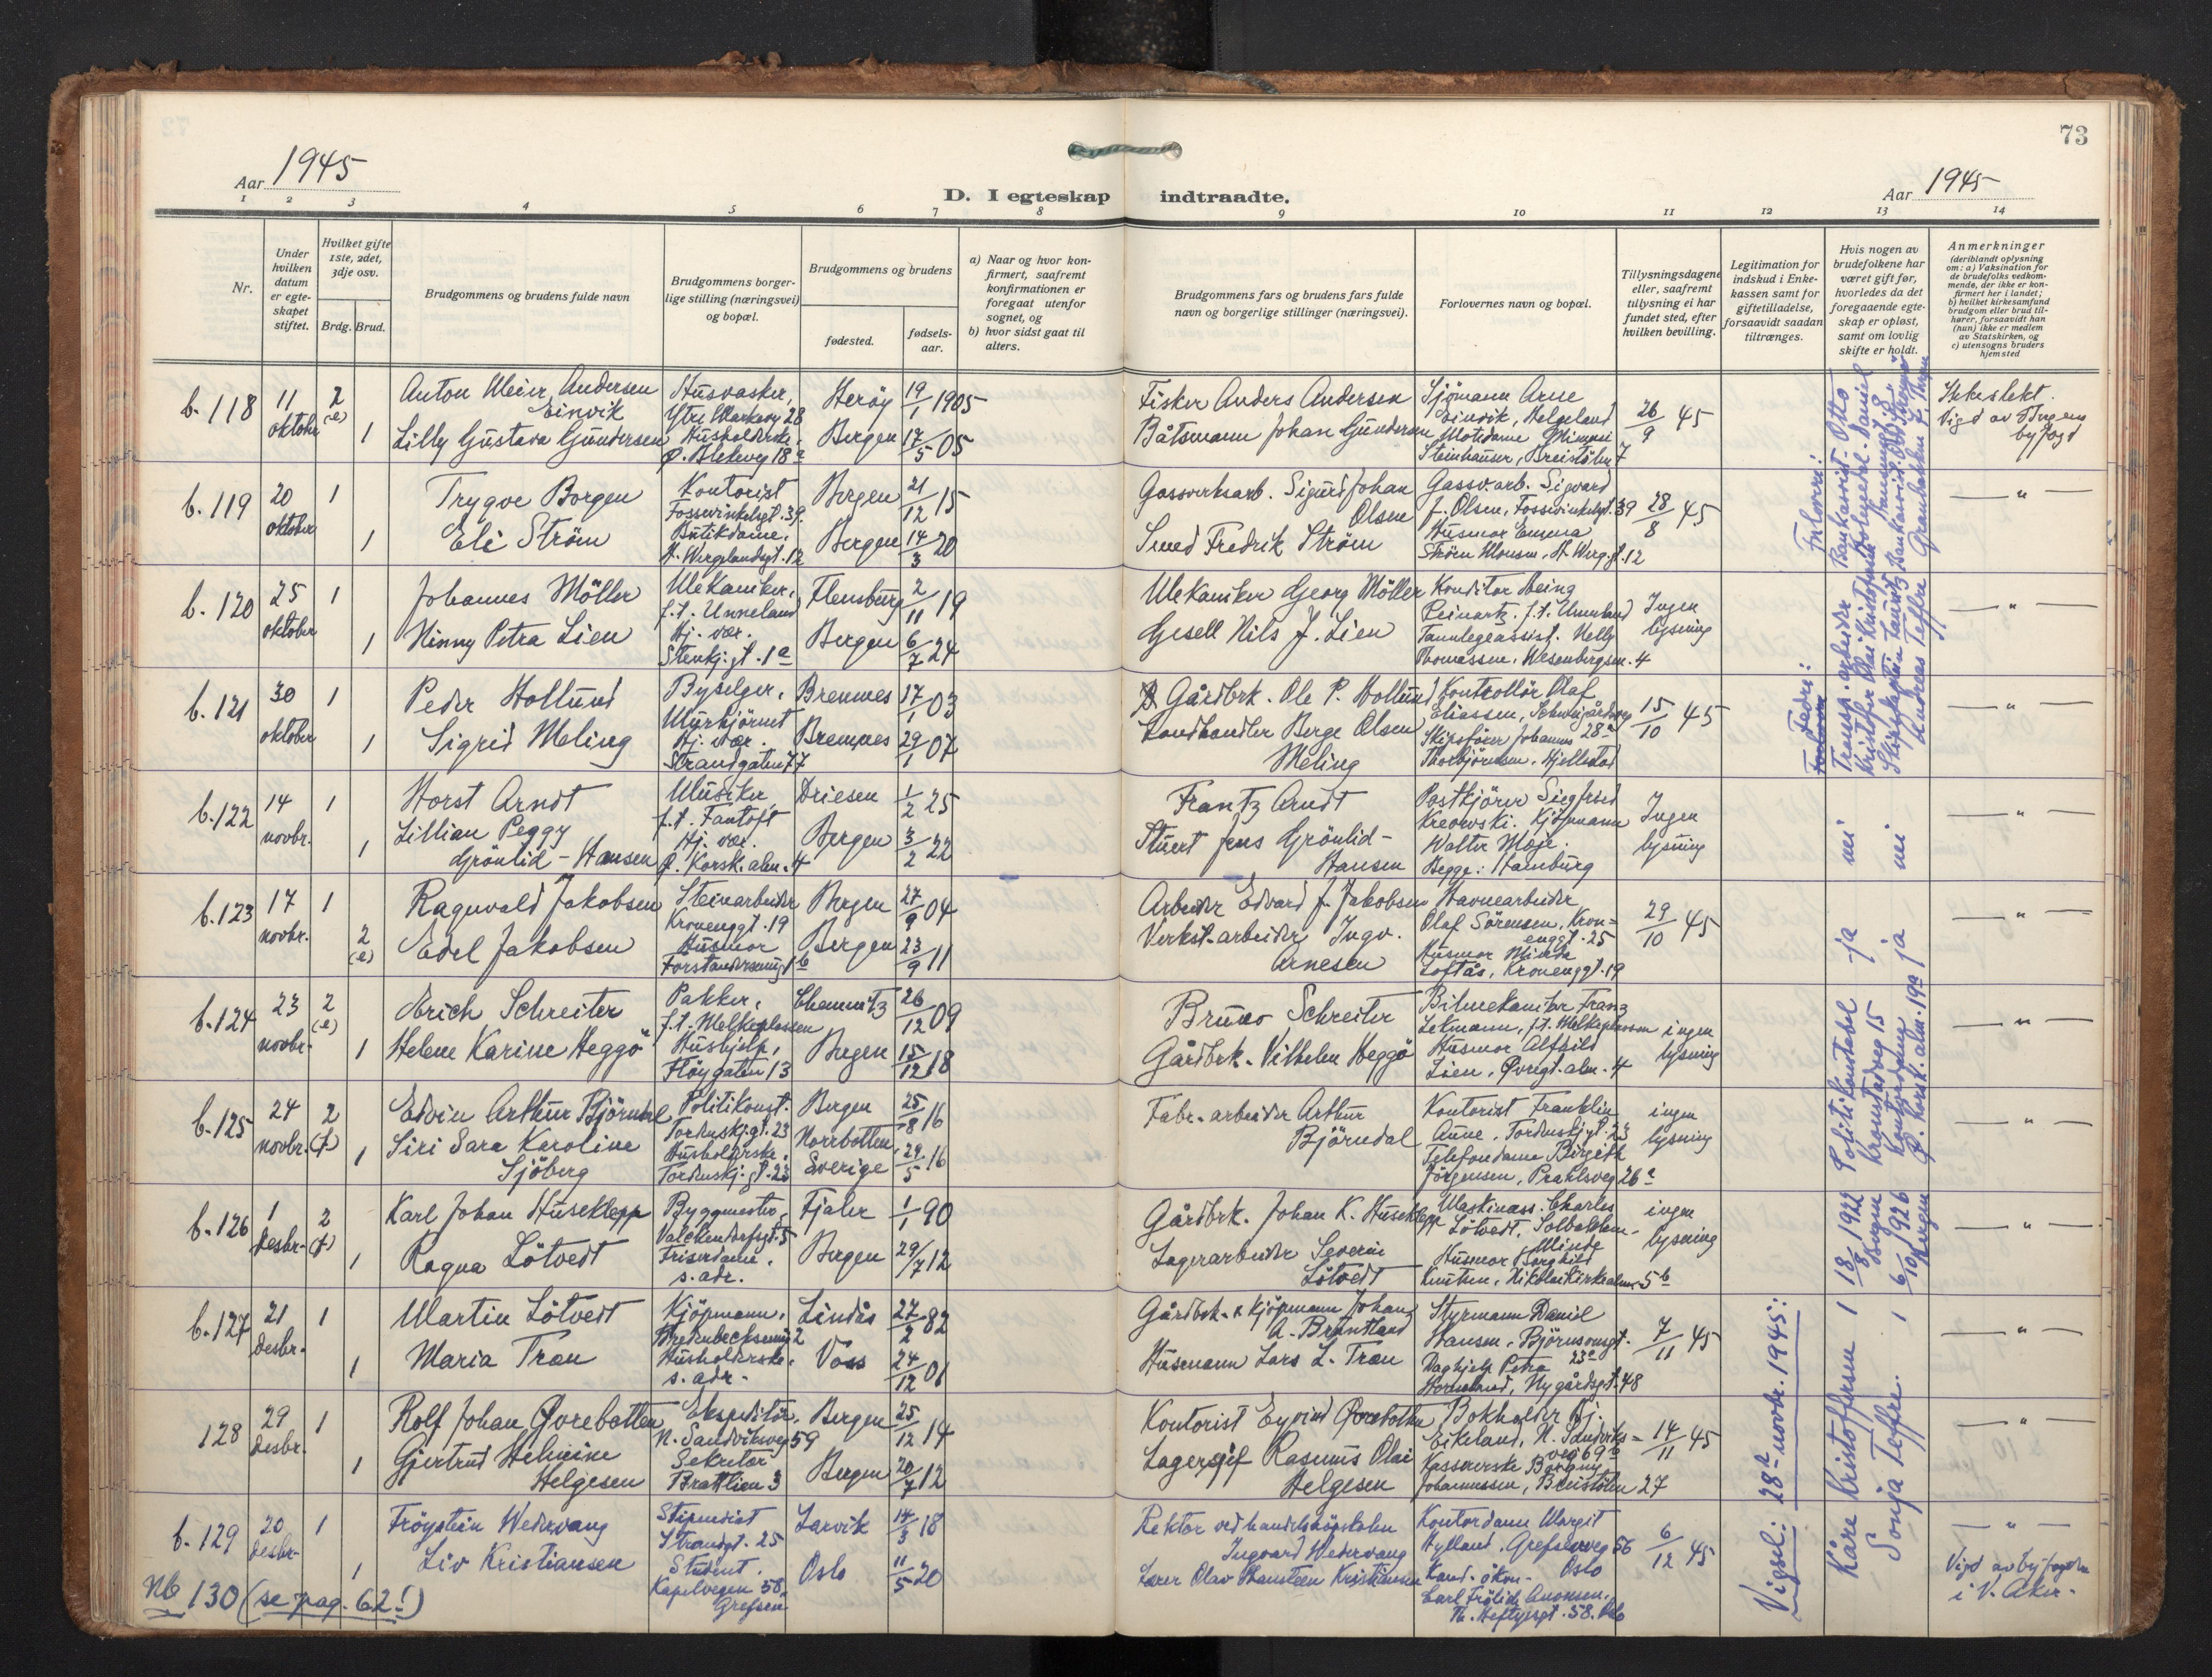 73
Aar 1945
Aar 1945
D. I egteskap indtraadte.
1 2 3 4 5 6 7 8 9 10 11 12 13 14
Nr.
Under hvilken datum er egteskapet stiftet.
Hvilket gifte 1ste, 2det, 3dje osv.
Brdg. Brud.
Brudgommens og brudens fulde navn
Brudgommens borgerlige stilling (næringsvei) og bopæl.
Brudgommens og brudens
fødested.
fødselsaar.
a) Naar og hvor konfirmert, saafremt konfirmationen er foregaat utenfor sognet, og
b) hvor sidst gaat til alters.
Brudgommens fars og brudens fars fulde navn og borgerlige stillinger (næringsvei).
Forlovernes navn og bopæl.
Tillysningsdagene eller, saafremt tillysning ei har fundet sted, efter hvilken bevilling.
Legitimation for indskud i Enkekassen samt for giftetilladelse, forsaavidt saadan tiltrænges.
Hvis nogen av brudefolkene har været gift før, hvorledes da det foregaaende egteskap er opløst, samt om lovlig skifte er holdt.
Anmerkninger
(deriblandt oplysning om: a) Vaksination for de brudefolks vedkommende, der ikke er konfirmert her i landet;
b) hvilket kirkesamfund brudgom eller brud tilhører, forsaavidt han (hun) ikke er medlem av Statskirken, og
c) utensogns bruders hjemsted
b. 118 11 oktober 2 (e) 1
Anton Meier Andersen Einvik
Husvasker, Ytre Markevg 28
Herøy 19/1 1905
Fisker Anders Andersen
Sjømann Arne Einvik, Helgeland
26/9 45
Ikke slekt. Vigd av Bergens byfogd
Lilly Gustava Gundersen
Husholderske, Ø. Blekevg 18a
Bergen 17/5 05
Båtsmann Johan Gundersen
Motedame Mimmi Steinhauser, Breistølen 7
b. 119 20 oktober 1 1
Trygve Borgen
Kontorist Fosswinkelsgt. 39.
Bergen 21/12 15
Gassverksarb. Sigurd Johan Olsen
Gassv.arb. Sigvard J. Olsen, Fosswinkelsgt. 39
28/8 45
— " —
Eli Ström
Butikdame, H. Wergelandsgt. 12
Bergen 14/3 20
Smed Fredrik Ström
Husmor Emma Ström Monsen, H. Werg.gt. 12
b. 120 25 oktober 1 1
Johannes Möller
Mekaniker, f.t. Unneland
Flensburg 2/11 19
Mekaniker Georg Möller
Konditor Peinartz. f.t. Unneland
Ingen lysning
— " —
Ninny Petra Lien
Hj. vær. Stenkj.gt. 1a
Bergen 6/7 24
Gesell Nils J. Lien
Tannlegeassist. Nelly Thomassen, Wesenbergsm. 4
b. 121 30 oktober 1 1
Peder Hollund
Byselger, Murhjørnet
Bremnes 17/1 03
Gårdbrk. Ole P. Hollund
Kontrollör Olaf Eliassen, Schweigårdsveg 28a
15/10 45
— " —
Sigrid Meling
Hj. vær. Strandgaten 77
Bremnes 29/1 07
Landhandler Berge Olsen Meling
Skipsfører Johannes Thorbjörnsen, Hjellestad
b. 122 14 novbr. 1 1
Horst Arndt
Musiker, f.t. Fantoft
Driesen 1/2 25
Frantz Arndt
Postkjører Siegfried
Ingen lysning
— " —
Lillian Peggy Grönlid-Hansen
Hj. vær. Ø. Korsk. alm. 4
Bergen 3/2 22
Stuert Jens Grönlid-Hansen
Kjøpmann Walter Moje. Begge: Hamburg
b. 123 17 novbr. 1 2 (e)
Ragnvald Jakobsen
Steinarbeider Kronenggt. 19
Bergen 27/9 04
Arbeider Edvard J. Jakobsen
Havnearbeider Olaf Sörensen, Kronenggt. 25
29/10 45
— " —
Edel Jakobsen
Husmor
Bergen 23/9 11
Verkst.arbeider Ingv. Arnesen
Husmor Minda Loftås, Kronenggt. 19
b. 124 23 novbr. 2 (e) 1
Erich Schreiter
Pakker, f.t. Melkeplassen
Chemnitz 26/12 09
Bruno Schreiter
Bilmekaniker Franz Lehmann, f.t. Melkeplassen
ingen lysning
— " —
Helene Karine Heggö
Hushjelp, Fløygaten 13
Bergen 15/12 18
Gårdbrk. Vilhelm Heggö
Husmor Alfhild Lien, Øvregt. alm. 4
b. 125 24 novbr. 2 (f) 1
Edvin Arthur Björndal
Politikonst. Tordenskj.gt. 23
Bergen 25/8 16
Fabr.arbeider Arthur Björndal
Kontorist Franklin Aune, Tordenskj.gt. 23
ingen lysning
— " —
Siri Sara Karoline Sjöberg
Husholderske, Tordenskj.gt. 23
Norrbotten, Sverige 29/5 16
Telefondame Birgith Jörgensen, Prahlsveg 26a
b. 126 1 desbr. 2 (f) 1
Karl Johan Huseklepp
Byggmester, Valckendorfsgt. 5
Fjaler 1/1 90
Gårdbrk. Johan K. Huseklepp
Maskinass. Charles Lötvedt, Solbakken, Minde
ingen lysning
— " —
Ragna Lötvedt
Friserdame, s. adr.
Bergen 29/7 12
Lagerarbeider Severin Lötvedt
Husmor Borghild Knutsen, Nikolaikirkealm. 5b
b. 127 21 desbr. 1 1
Martin Lötvedt
Kjöpmann,
Lindås 27/2 82
Gårdbrk. & Kjöpmann Johan A. Bruntland
Styrmann Daniel Hansen, Björnsonsgt. 23a
7/11 45
— " —
Maria Træn
Husholderske, s. adr.
Voss 24/12 01
Husmann Lars L. Træn
Daghjelp Petra Horneland, Nygårdsgt. 48
128 29 desbr. 1 1
Rolf Johan Øvrebotten
Ekspeditör, N. Sandviksveg 59
Bergen 25/12 14
Kontorist Eyvind Øvrebotten
Bokholder Bj. Eikeland, N. Sandviksveg 69a
14/11 45
— " —
Gjertrud Helmine Helgesen
Sekretær Brattlien 3
Bergen 20/7 12
Lagersjef Rasmus Olai Helgesen
Kassererske Borghild Johannessen, Breistølen 27
b. 129 20 desbr. 1 1
Fröystein Wedervang
Stipendiat Strandgt. 25
Larvik 14/3 18
Rektor ved handelshögskolen Ingvard Wedervang
Kontordame Margit Hylland, Grefsenveg 56 Oslo
6/12 45
— " —
Liv Kristiansen
Student. Kapelvegen 58, Grefsen
Oslo 11/5 20
Lærer Olav Hansteen Kristiansen
Kand. ökon. Carl Frölich Th. Heftyesgt. 58. Oslo
Vigd av byfogden i V. Aker.
Nb 130 (se pag. 62!)
Vigsel: 28de novbr. 1945:
Kåre Kristoffersen 1 18/8 1922 Bergen Politikonstabel Kronstadveg 15 ja nei
Sonja Teffre. 1 6/10 1926 Bergen Kontordame Ø. Korsk. alm. 19a ja nei
Fedre:
Forlovere: